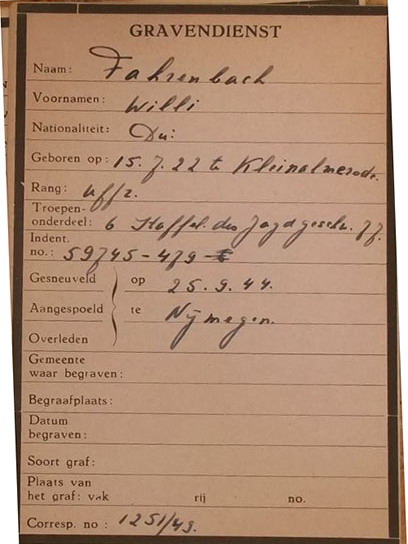 GRAVENDIENST
Naam: Fahrenbach
Voornamen: Willi
Nationaliteit: Du:
Geboren op: 15.7.22 te Kleinalmerode.
Rang: Uffz.
Troepen-
onderdeel: 6 Staffel. des Jagdgeschw. 77.
Indent.
no.: 59745-479-
Gesneuveld op 25.9.44.
Aangespoeld te Nijmegen.
Overleden
Gemeente
waar begraven:
Begraafplaats:
Datum
begraven:
Soort graf:
Plaats van
het graf: vak rij no.
Corresp. no: 1251/49.